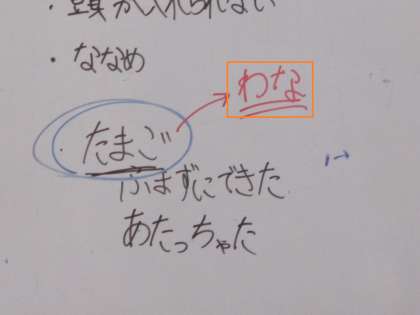 ・豆頁が入れられない
・ななめ
わな
・たまご
ふまずにできた
あたっちゃた